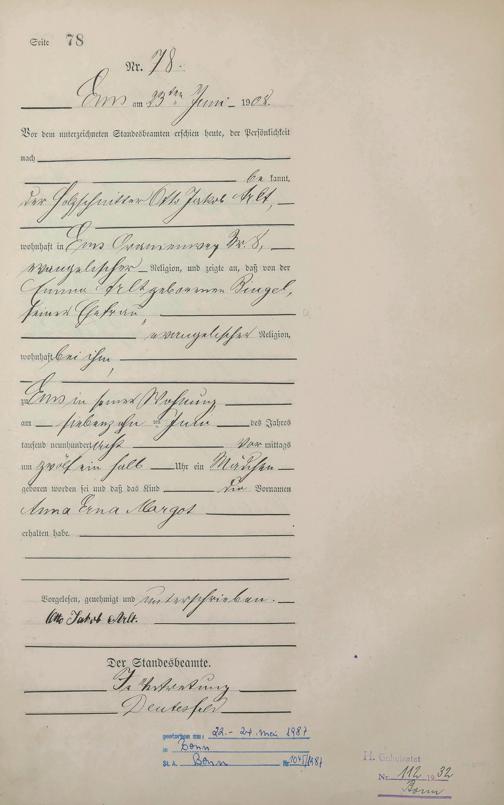 Seite 78
Nr. 78.
Ems am 23ten Juni 1908.
Vor dem unterzeichneten Standesbeamten erschien heute, der Persönlichkeit
nach
be kannt,
der Holzschnitter Otto Jakob Arlt,
wohnhaft in Ems Oranienweg Nr. 8,
evangelischer Religion, und zeigte an, daß von der
Emma Arlt geborenen Bingel,
seiner Ehefrau,
evangelischer Religion,
wohnhaft bei ihm,
zu Ems in seiner Wohnung
am siebenzehn ten Juni des Jahres
tausend neunhundert acht Vor mittags
um zwölf ein halb Uhr ein Mädchen
geboren worden sei und daß das Kind die Vornamen
Anna Erna Margot
erhalten habe.
Vorgelesen, genehmigt und unterschrieben.
Otto Jakob Arlt.
Der Standesbeamte.
In Vertretung
gestorben am: 22.-24. Mai 1987
in Bonn
St. A. Bonn Nr. 1045/1987
H. Geheiratet
Nr. 112 1932
Bonn